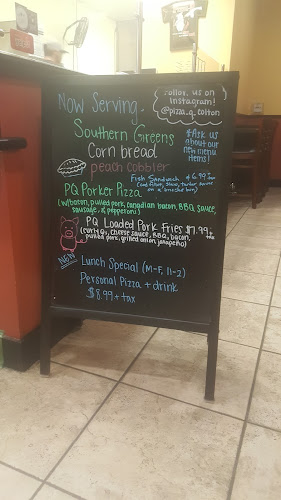 Follow us on
Instagram!
@pizza_q_colton
Now Serving.
* Ask us
about our
new menu
items!
Southern Greens
Corn bread
peach cobbler
Fish Sandwich $6.99 + tax
PQ Porker Pizza
(w/bacon, pulled pork, canadian bacon, BBQ sauce,
sausage, & pepperoni)
PQ Loaded Pork Fries $7.99 + tax
cheese sauce, BBQ, bacon,
pulled pork, grilled onion, jalapeño)
NEW
Lunch Special (M-F, 11-2)
Personal Pizza + drink
$8.99 + tax